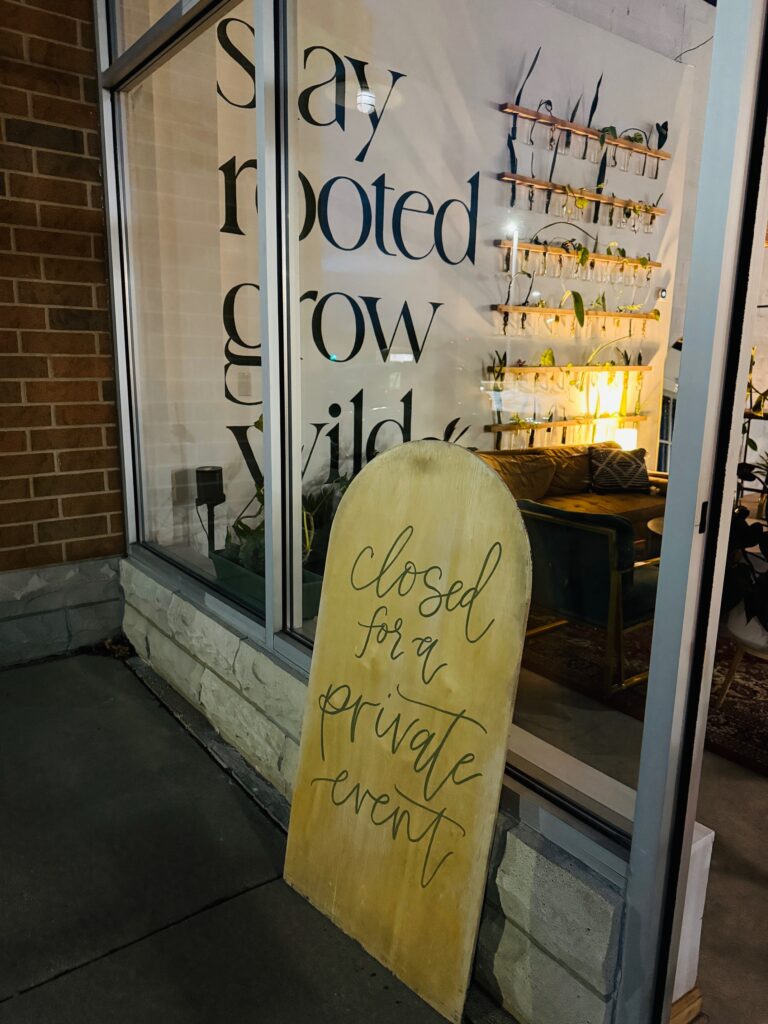 stay
rooted
grow
wild
closed
for a
private
event